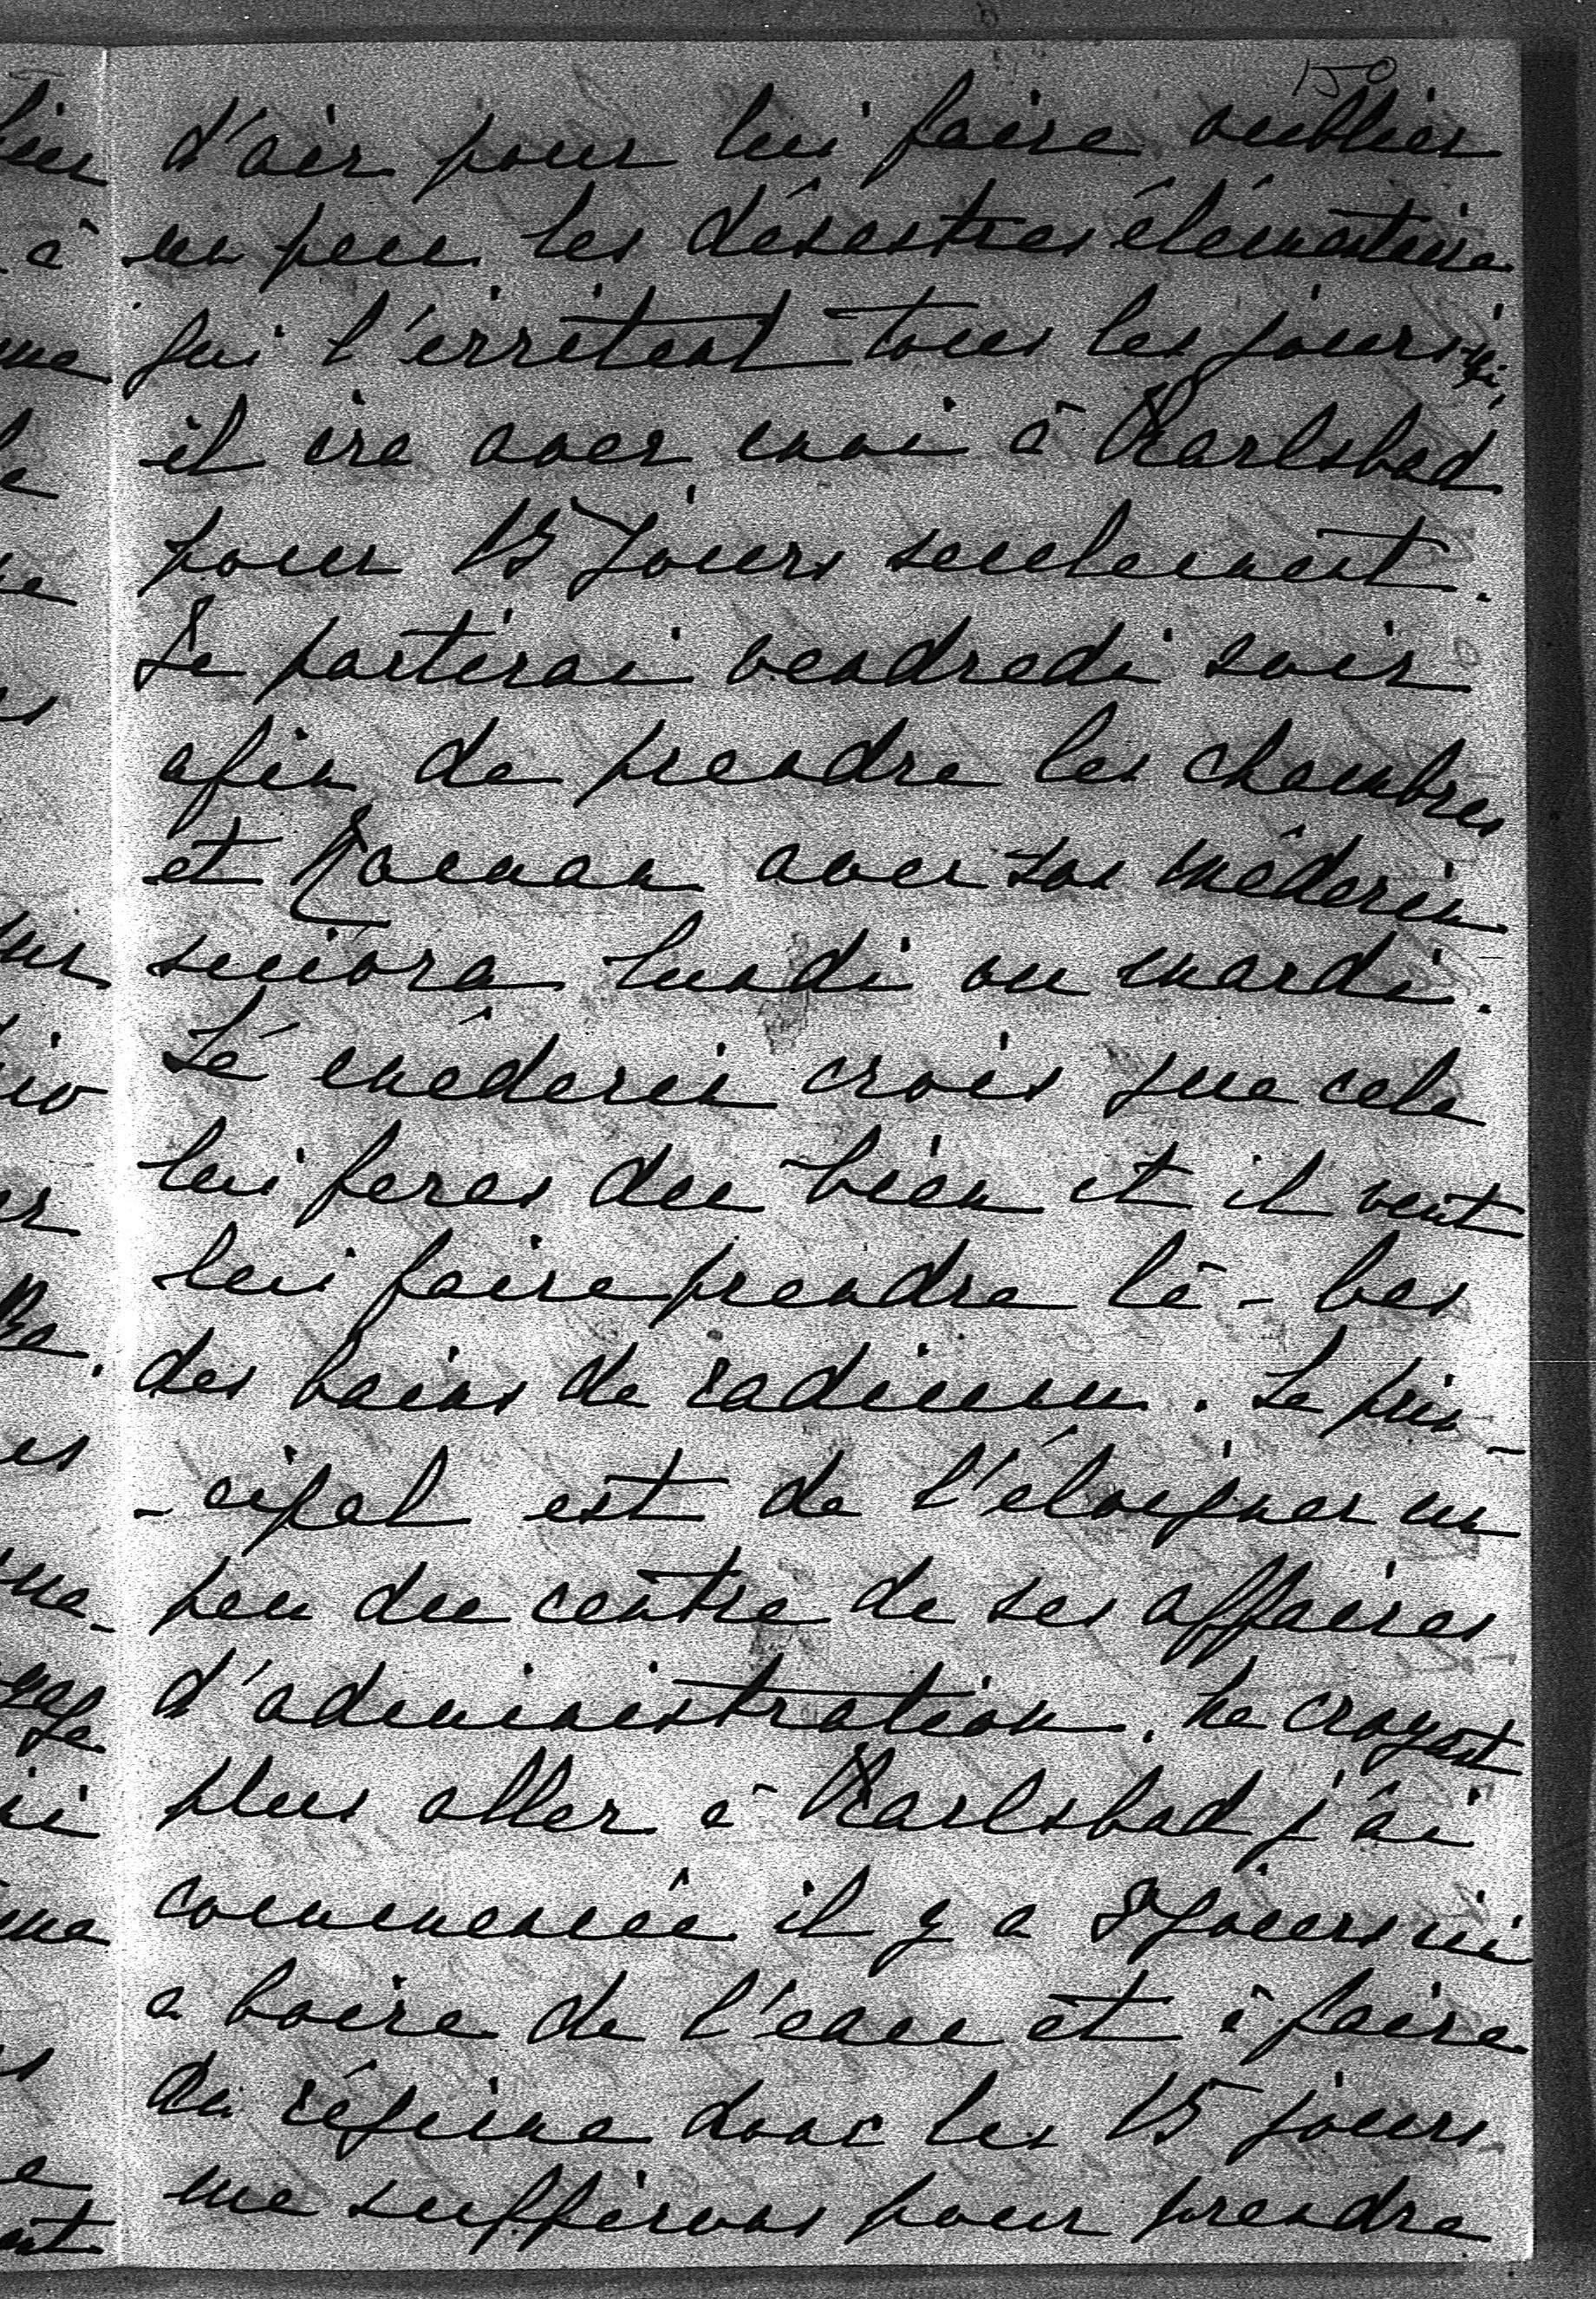 150
d'air pour lui faire oublier
un peu les désastres élémentaire
qui l'irritent tous les jours ici,
il ira avec moi à Karlsbad
pour 15 jours seulement.
Je partirai vendredi soir
afin de prendre les chambres
et Roman avec son médecin
suivra lundi ou mardi.
Le médecin crois que cela
lui feras du bien et il veut
lui faire prendre là-bas
des bains de radium. Le prin-
-cipal est de l'éloigner un
peu du centre de ses affaires
d'administration. Ne croyant
plus aller à Karlsbad j'ai
commencée il y a 8 jours ici
a boire de l'eau et à faire
du régime donc les 15 jours
me suffirons pour prendre